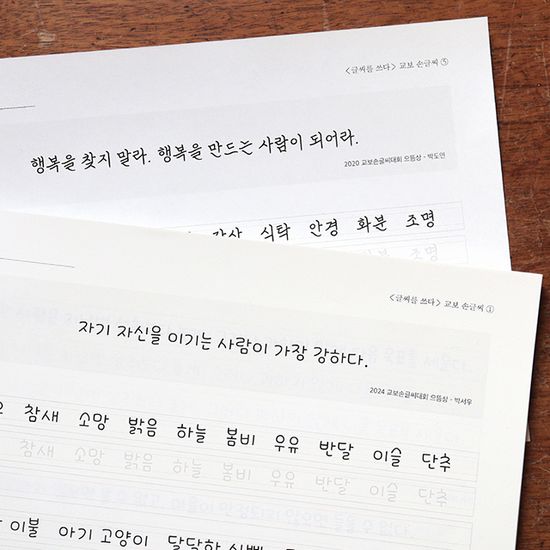 <글씨를 쓰다> 교보 손글씨 ⑤
행복을 찾지 말라. 행복을 만드는 사람이 되어라.
2020 교보손글씨대회 으뜸상 - 박도연
감상 식탁 안경 화분 조명
화분 조명
<글씨를 쓰다> 교보 손글씨 ①
자기 자신을 이기는 사람이 가장 강하다.
2024 교보손글씨대회 으뜸상 - 박서우
참새 소망 밝음 하늘 봄비 우유 반달 이슬 단추
참새 소망 밝음 하늘 봄비 우유 반달 이슬 단추
이불 아기 고양이 달달한